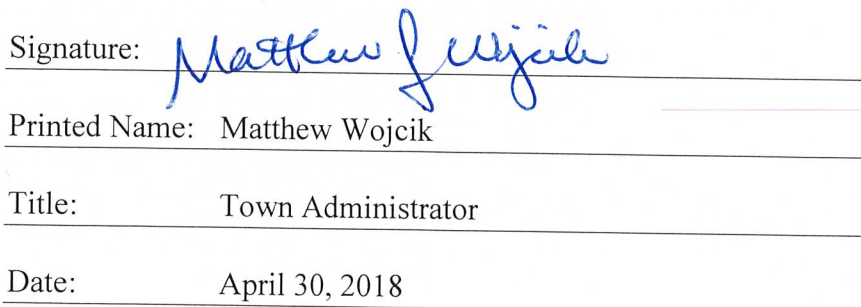 Signature: Matthew J Wojcik
Printed Name: Matthew Wojcik
Title: Town Administrator
Date: April 30, 2018